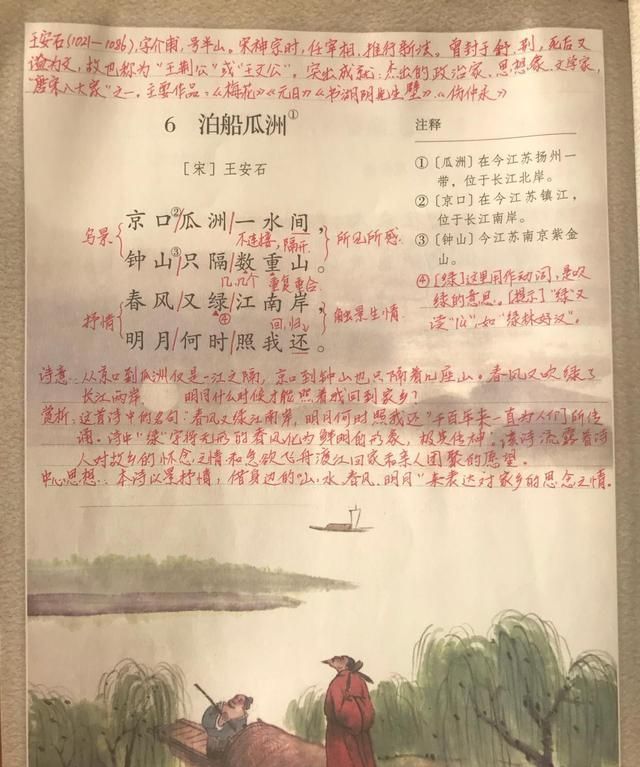 王安石(1021—1086),字介甫,号半山。宋神宗时,任宰相,推行新法。曾封于舒、荆,死后又
谥为文,故也称为“王荆公”或“王文公”。突出成就:杰出的政治家、思想家、文学家,
“唐宋八大家”之一。主要作品:《梅花》《元日》《书湖阴先生壁》《伤仲永》
6 泊船瓜洲①
[宋] 王安石
京口②/瓜洲/一水间,
不连接,隔开
钟山③/只隔/数重山。
几,几个 重复重合
写景
所见所感
春风/又绿/江南岸,
④ 回,归
明月/何时/照我还。
抒情
触景生情
注释
①〔瓜洲〕在今江苏扬州一
带,位于长江北岸。
②〔京口〕在今江苏镇江,
位于长江南岸。
③〔钟山〕今江苏南京紫金
山。
④〔绿〕这里用作动词,是吹
绿的意思。〔提示〕“绿”又
读“lù”,如“绿林好汉”。
诗意:从京口到瓜洲仅是一江之隔,京口到钟山也只隔着几座山。春风又吹绿了
长江两岸, 明月什么时候才能照着我回到家乡?
赏析:这首诗中的名句:春风又绿江南岸,明月何时照我还”千百年来一直为人们所传
诵。诗中“绿”字将无形的春风化为鲜明的形象,极其传神。该诗流露着诗
人对故乡的怀念之情和急欲飞舟渡江回家和亲人团聚的愿望。
中心思想:本诗以景抒情,借身边的“山、水、春风、明月”来表达对家乡的思念之情。